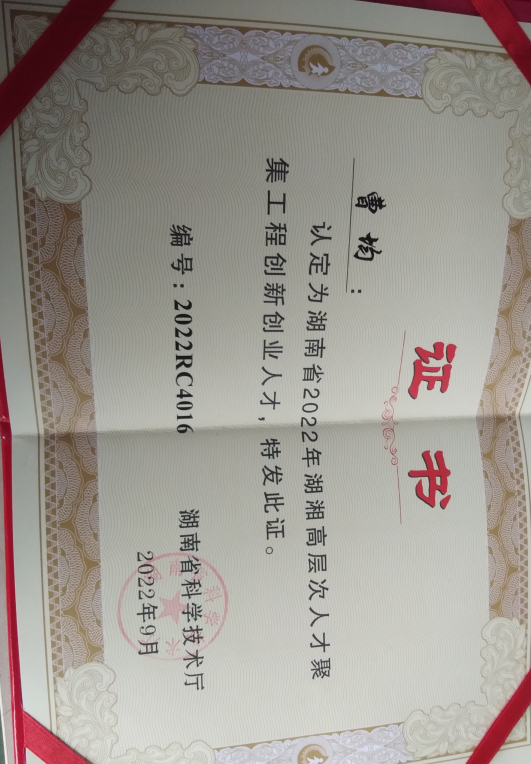 证书
曹均：
认定为湖南省2022年湖湘高层次人才聚
集工程创新创业人才，特发此证。
编号：2022RC4016
湖南省科学技术厅
2022年9月